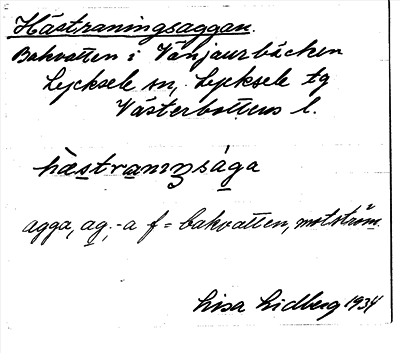 Hästraningsaggan.
Bakvatten i Vänjaurbäcken
Lycksele sn, Lycksele tg
Västerbottens l.
hæstranıŋsága
agga, ag,-a f = bakvatten, motström.
Lisa Lidberg 1934